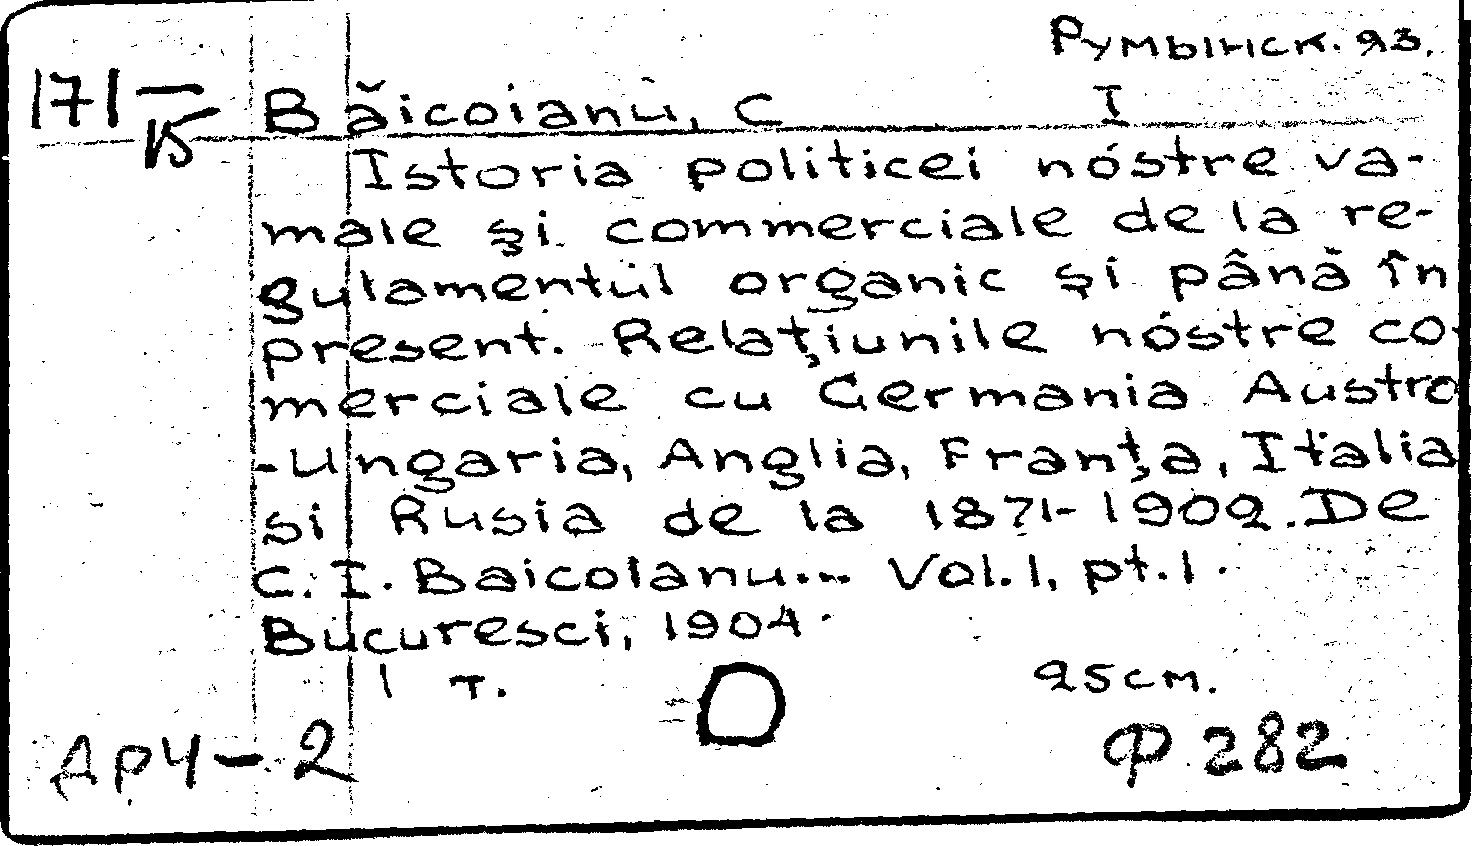 Румынск. 93.
171—
Băicoianu, C I
15
Istoria politicei nóstre va-
male şi commerciale de la re-
gulamentul organic şi până în
present. Relaţiunile nóstre co-
merciale cu Germania Austro
-Ungaria, Anglia, Franţa, Italia
si Rusia de la 1871-1902. De
C. I. Baicoianu... Vol. 1, pt. 1.
Bucuresci, 1904.
1 т. 25см.
АрЧ-2 Ф 282